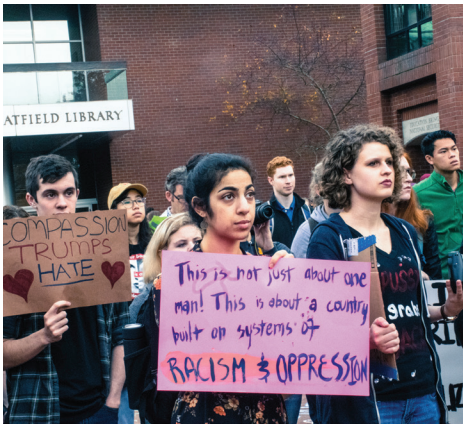 ATFIELD LIBRARY
COMPASSION
TRUMPS
HATE
This is not just about one
man! This is about a country
built on systems of
RACISM & OPPRESSION
PUSSY
grab